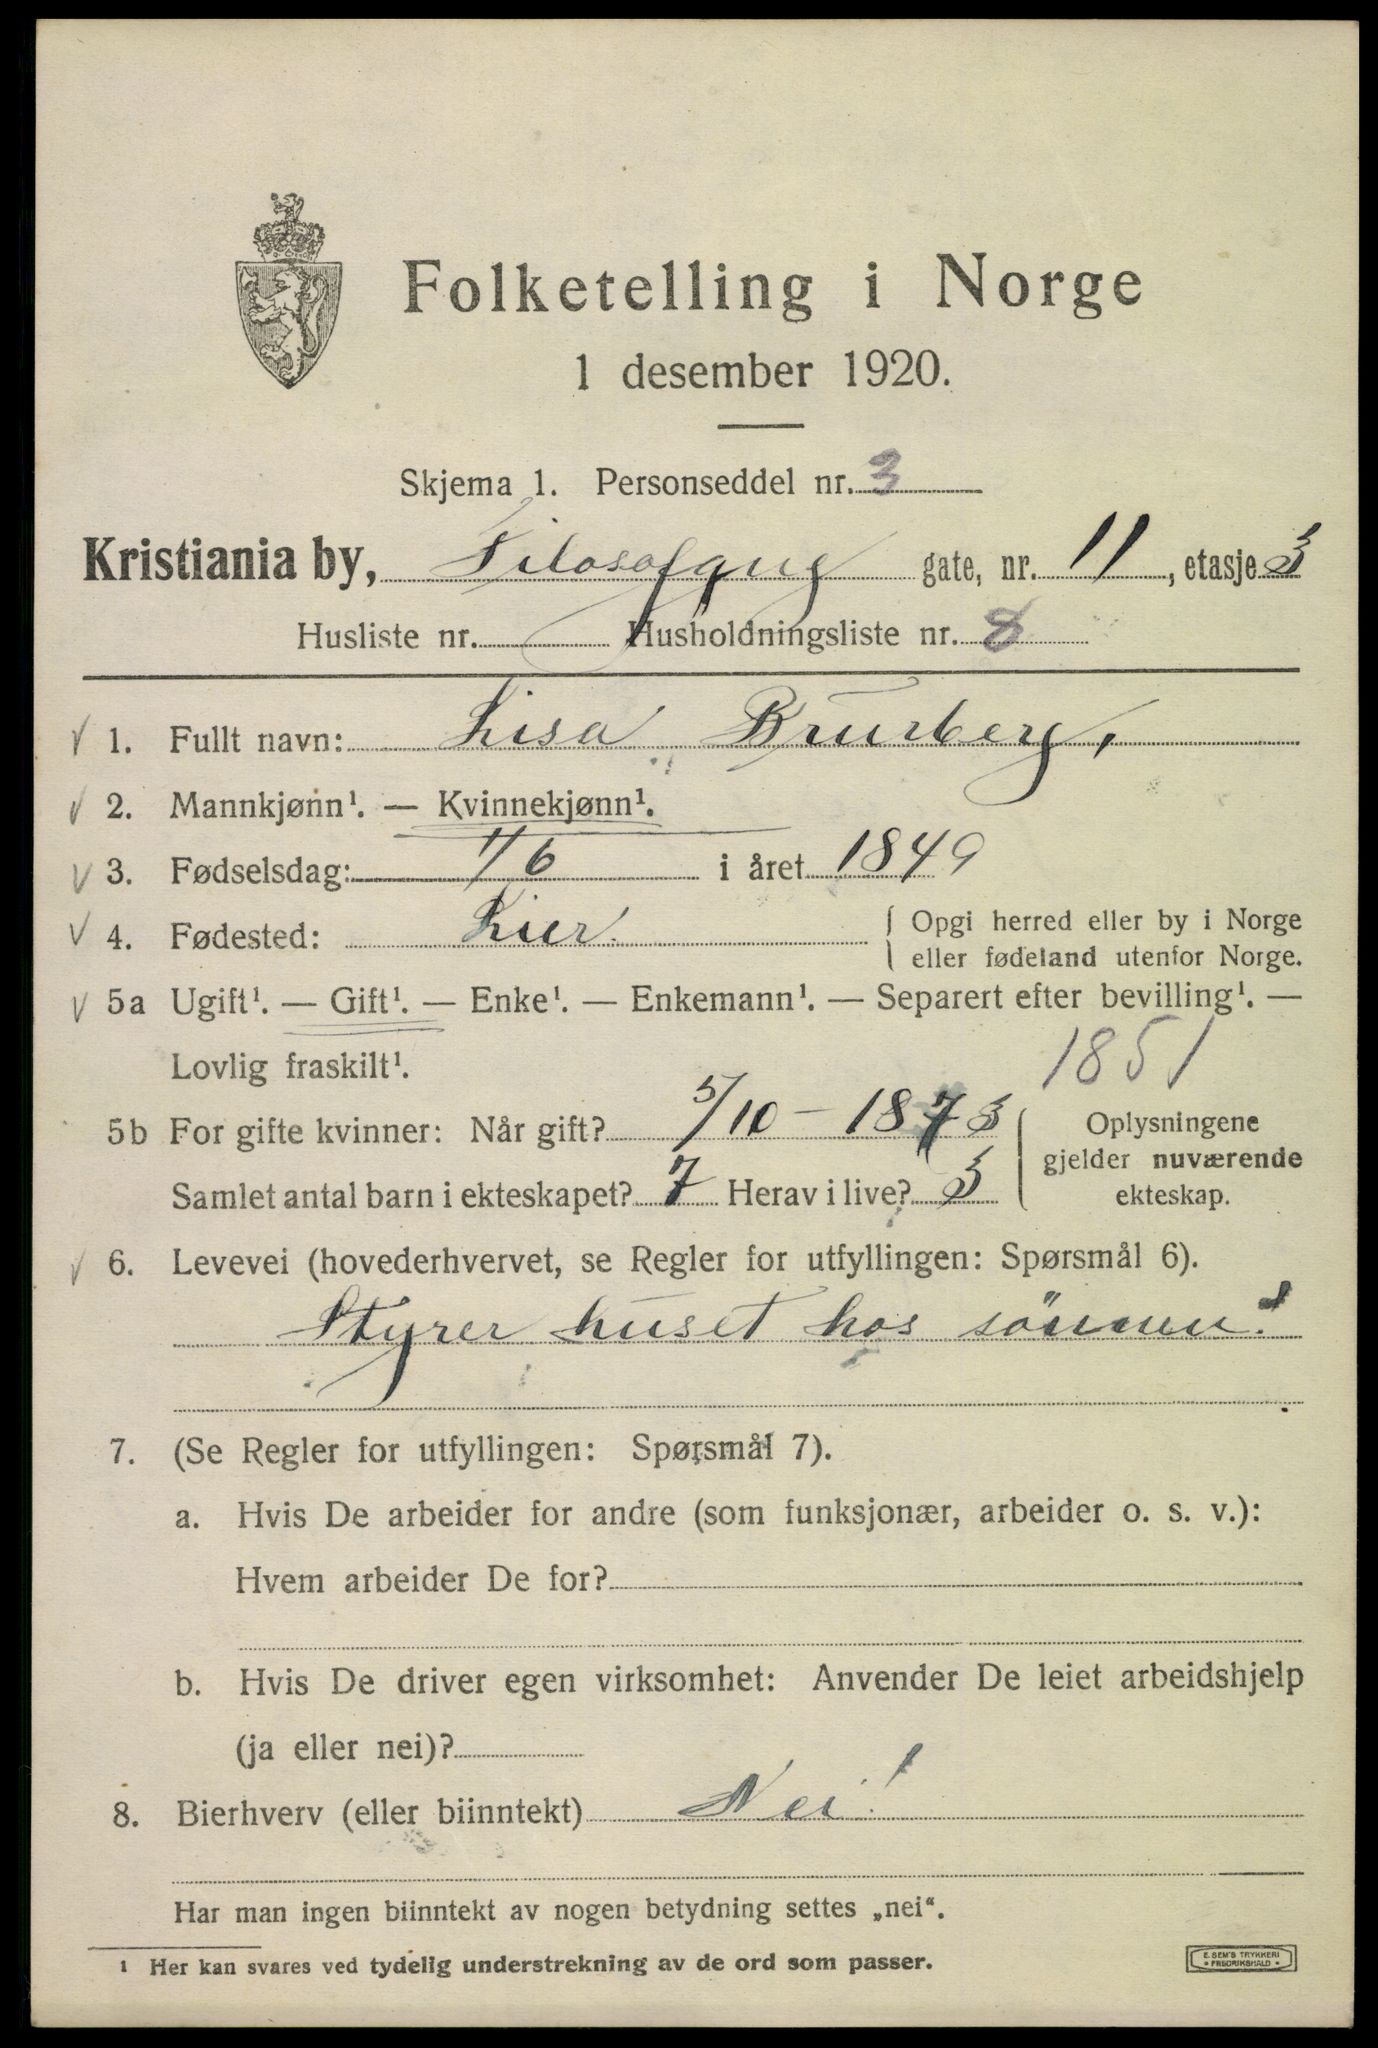 Folketelling i Norge
1 desember 1920.
Skjema 1. Personseddel nr. 3
Kristiania by, Filosofgus gate, nr. 11, etasje 3
Husliste nr. Husholdningsliste nr. 8
1. Fullt navn: Lisa Brurberg,
2. Mannkjønn¹. — Kvinnekjønn¹.
3. Fødselsdag: 1/6 i året 1849
4. Fødested: Lier. Opgi herred eller by i Norge
eller fødeland utenfor Norge.
5a Ugift¹. — Gift¹. — Enke¹. — Enkemann¹. — Separert efter bevilling¹. —
Lovlig fraskilt¹. 1851
5b For gifte kvinner: Når gift? 5/10 - 1873 Oplysningene
gjelder nuværende
Samlet antal barn i ekteskapet? 7 Herav i live? 3 ekteskap.
6. Levevei (hovederhvervet, se Regler for utfyllingen: Spørsmål 6).
Styrer huset hos sönnen!
7. (Se Regler for utfyllingen: Spørsmål 7).
a. Hvis De arbeider for andre (som funksjonær, arbeider o. s. v.):
Hvem arbeider De for?
b. Hvis De driver egen virksomhet: Anvender De leiet arbeidshjelp
(ja eller nei)?
8. Bierhverv (eller biinntekt) Nei!
Har man ingen biinntekt av nogen betydning settes „nei“.
¹ Her kan svares ved tydelig understrekning av de ord som passer.
E. SEM'S TRYKKERI
• FREDRIKSHALD •